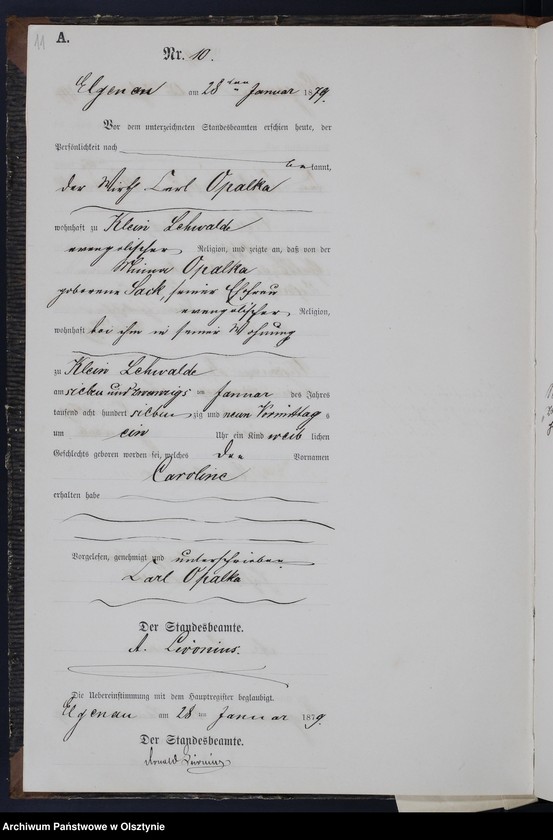 11
A.
Nr. 10.
Elgenau am 28ten Januar 1879.
Vor dem unterzeichneten Standesbeamten erschien heute, der
Persönlichkeit nach
bekannt,
der Wirth Carl Opalka
wohnhaft zu Klein Lehwalde
evangelischer Religion, und zeigte an, daß von der
Minna Opalka
geborene Sack, seiner Ehefrau
evangelischer Religion,
wohnhaft bei ihm in seiner Wohnung
zu Klein Lehwalde
am sieben und zwanzigs ten Januar des Jahres
tausend acht hundert sieben zig und neun Vormittag s
um ein Uhr ein Kind weib lichen
Geschlechts geboren worden sei, welches den Vornamen
Caroline
erhalten habe
Vorgelesen, genehmigt und unterschrieben
Carl Opalka
Der Standesbeamte.
A. Livonius.
Die Uebereinstimmung mit dem Hauptregister beglaubigt.
Elgenau am 28 ten Januar 1879.
Der Standesbeamte.
Arnold Livonius
Archiwum Państwowe w Olsztynie